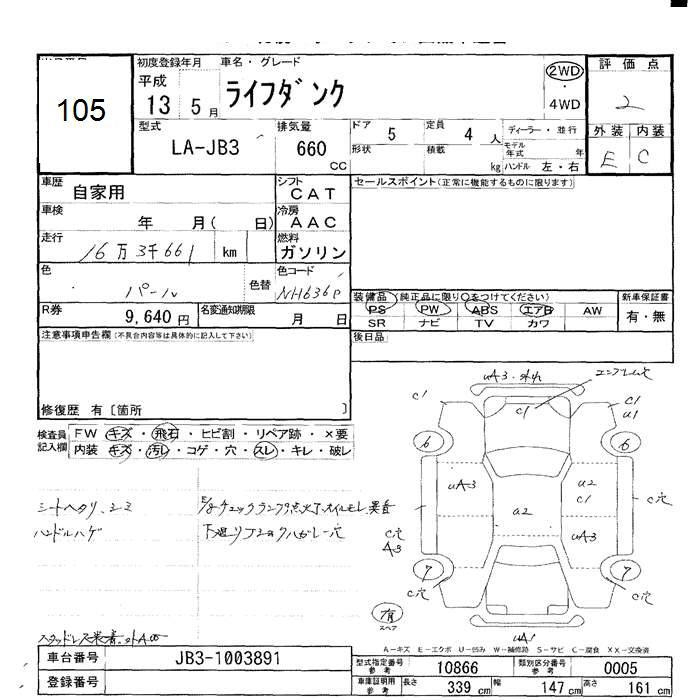 初度登録年月 車名・グレード
平成 13 5月 ライフダンク
2WD・4WD
評価点
2
105
型式 排気量
LA-JB3 660 CC
ドア 5 定員 4 人 ディーラー・並行
形状 積載 kg モデル年式 年
ハンドル 左・右
外装 内装
E C
車歴 自家用
シフト CAT
セールスポイント(正常に機能するものに限ります)
車検 年 月( 日)
冷房 AAC
走行 16万3千661 km
燃料 ガソリン
色 パール 色替
色コード NH636P
装備品 (純正品に限り○をつけてください) 新車保証書
PS PW ABS エアB AW 有・無
SR ナビ TV カワ
R券 9,640円 名変通知期限 月 日
後日品
注意事項申告欄(不具合内容等は具体的に記入して下さい)
修復歴 有〔箇所 〕
検査員記入欄
FW キズ・飛石・ヒビ割・リペア跡・×要
内装 キズ・汚レ・コゲ・穴・スレ・キレ・破レ
シートヘタリ、シミ
ハンドルハゲ
E/gチェックランプ点灯オイルモレ、異音
uA3・
C1
C1
C1
U1
6
6
uA3
u2
C1
a2
uA3
C穴
A3
C穴
7
7
C穴
C穴
有
スペア
uA1
A-キズ E-エクボ U-凹み W-補修跡 S-サビ C-腐食 XX-交換済
車台番号 JB3-1003891
登録番号
型式指定番号 参考 10866 類別区分番号 参考 0005
車庫証明用 参考 長さ 339 cm 幅 147 cm 高さ 161 cm